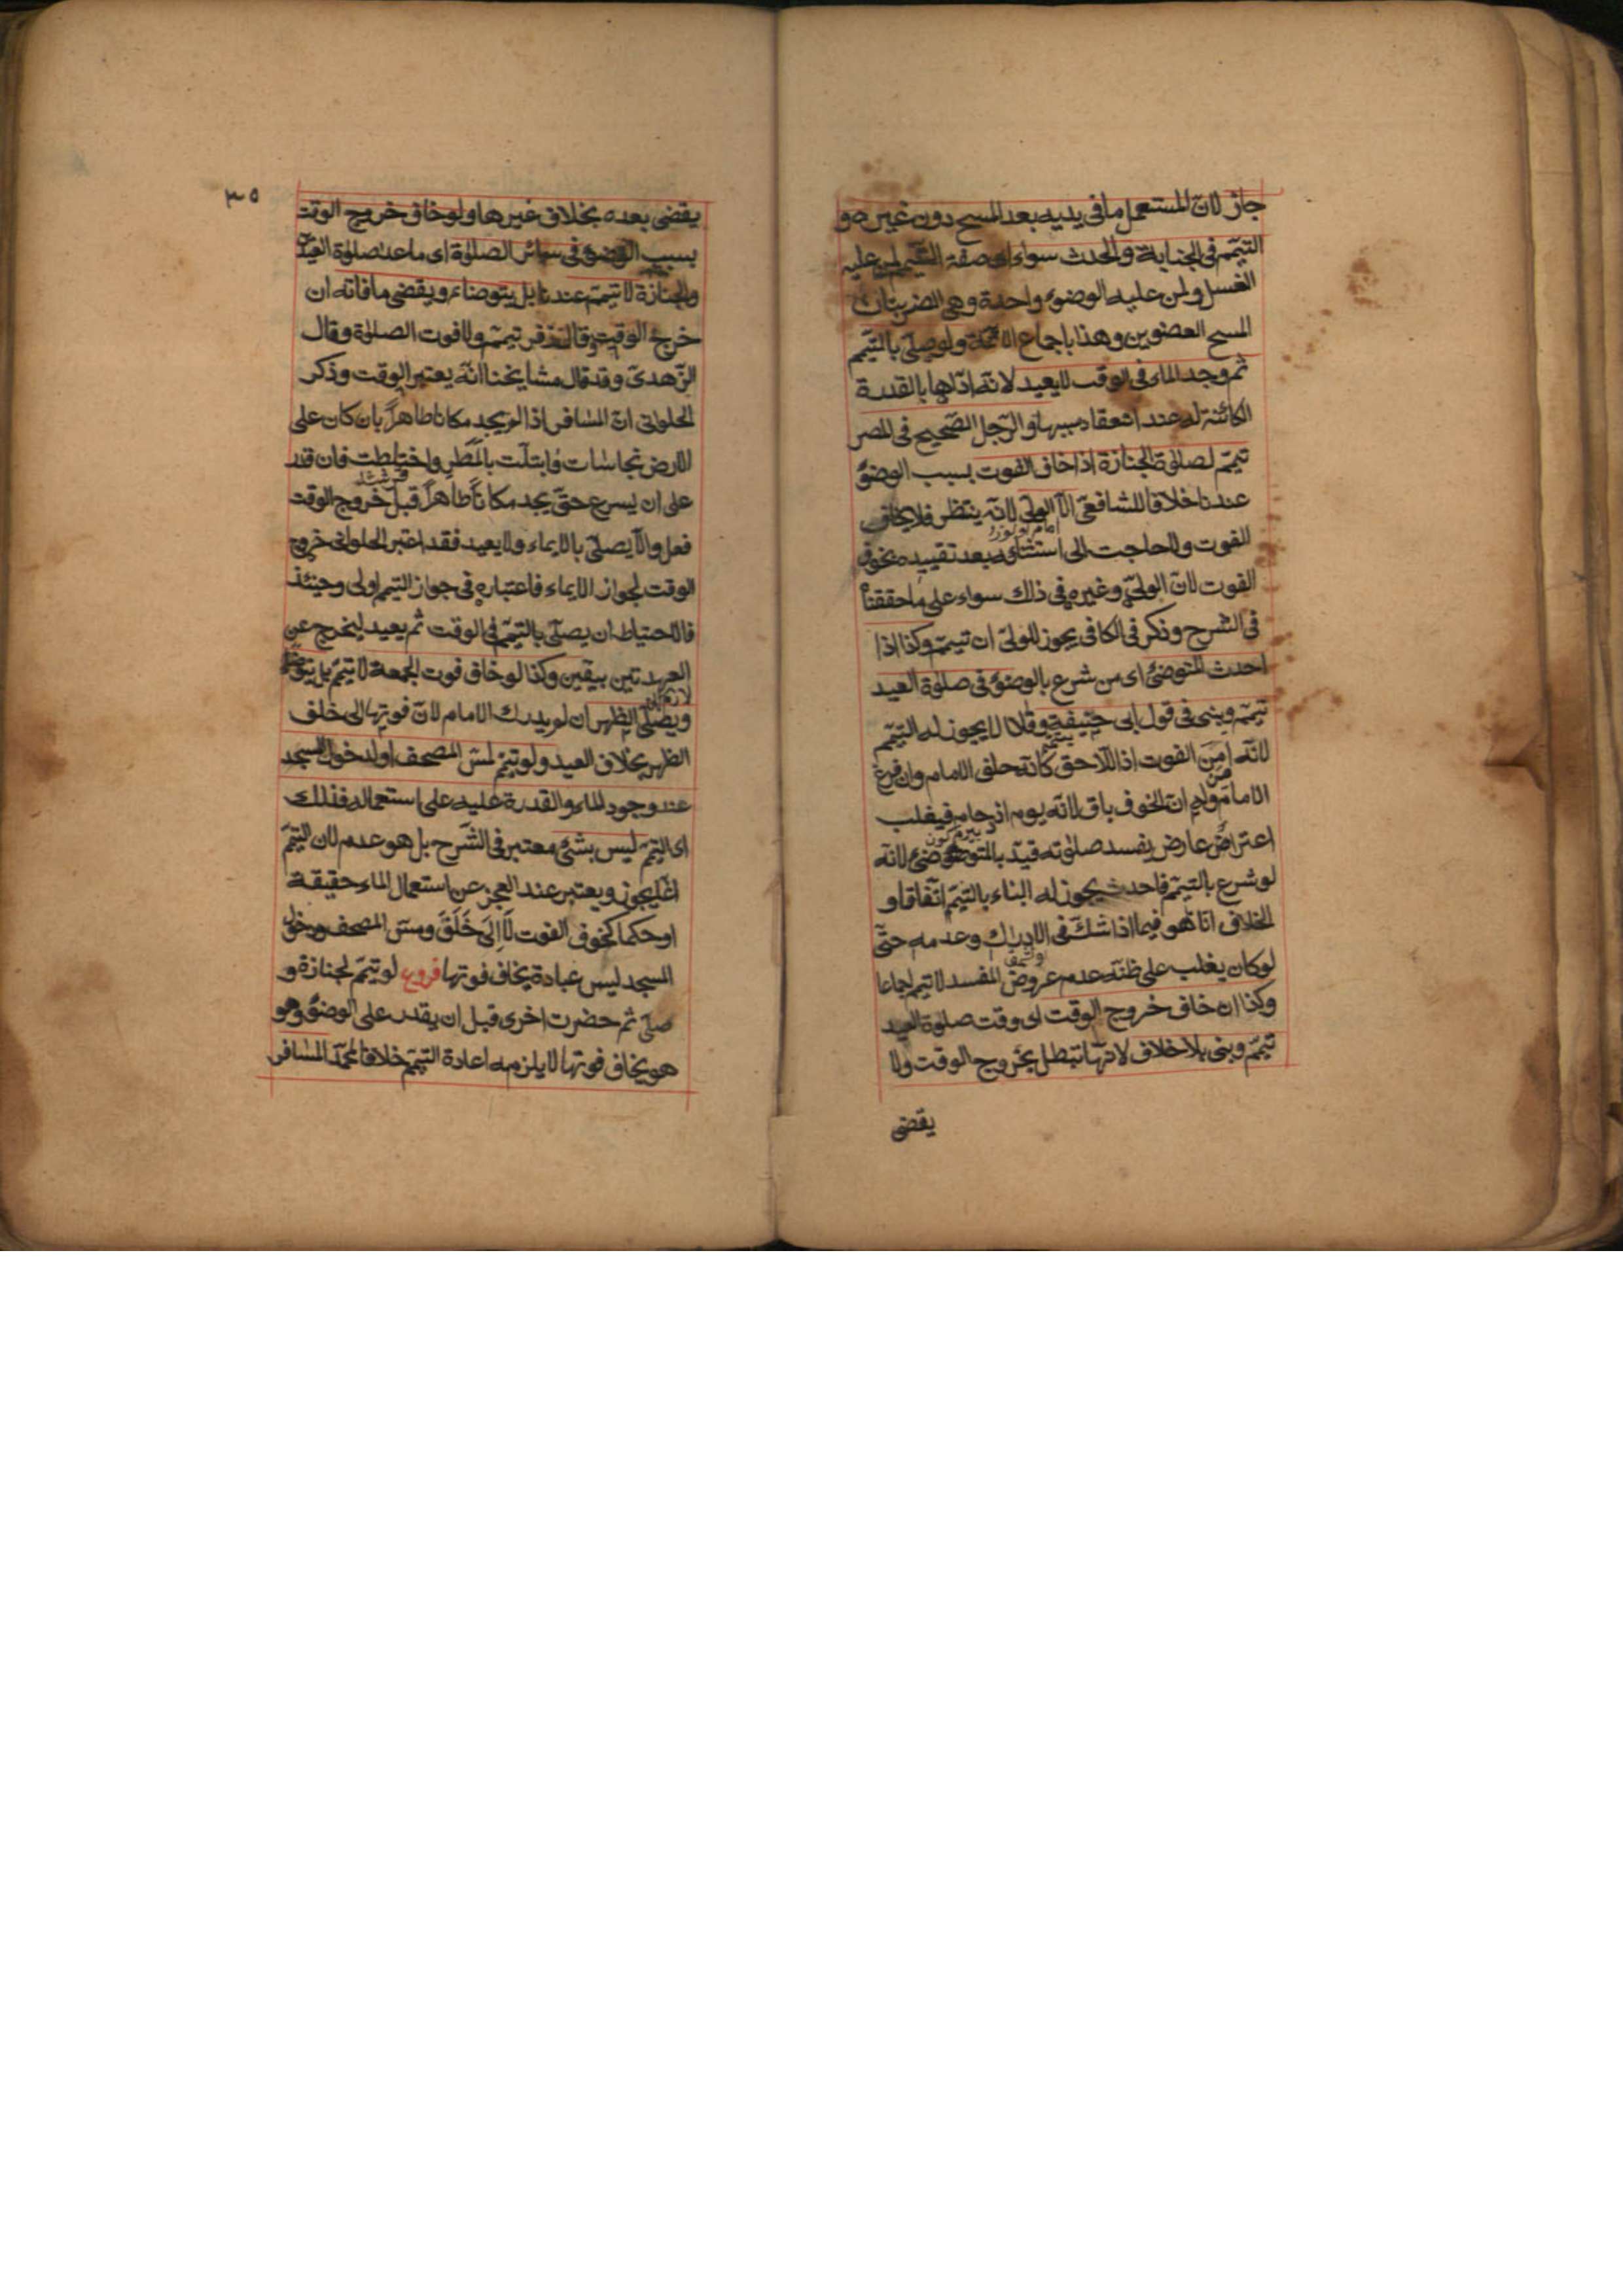 جاز لانّ المستعمل ما فى يديه بعد المسح دون غيره و
التيمّم فى الجنابة والحدث سواء اى صفة التيمّم لمن عليه
الغسل ولمن عليه الوضوء واحدة وهى الضربتان
المسح العضوين وهذا باجماع الائمّة ولو صلّى بالتيمّم
ثم وجد الماء فى الوقت لا يعيد لانّه ادّاها بالقدرة
الكائنة له عند انعقاد سببها والرّجل الصّحيح فى المصر
تيمّم لصلوة الجنازة اذا خاف الفوت بسبب الوضوء
عندنا خلافا للشافعىّ الاّ الولىّ لانّه ينتظر فلا يخاف
الفوت ولا حاجت الى استثنائه بعد تقييده بخوف
الفوت لانّ الولىّ وغيره فى ذلك سواء على ما حققناه
فى الشرح وذكر فى الكافى يجوز للولىّ ان تيمّم وكذا اذا
احدث المتوضئ اى من شرع بالوضوء فى صلوة العيد
تيمّم وبنى فى قول ابى حنيفة وقالا لا يجوز له التيمّم
لانّه امِنَ الفوت اذ اللّاحق كانّه خلف الامام وان فرغ
الامام وله انّ الخوف باق لانّه يوم ازدحام فيغلب
اعتراض عارض يفسد صلوته قيّد بالمتوضئ لانّه
لو شرع بالتيمّم فاحدث يجوز له البناء بالتيمّم اتّفاقا و
الخلاف انما هو فيما اذا شكّ فى الادراك وعدمه حتّى
لو كان يغلب على ظنّه عدم عروض المفسد لا تيمم اجماعا
وكذا ان خاف خروج الوقت اى وقت صلوة العيد
تيمّم وبنى بلا خلاف لانّها تبطل بخروج الوقت ولا
يقضى
٣٥
يقضى بعده بخلاف غيرها ولو خاف خروج الوقت
بسبب الوضوء فى سائر الصلوة اى ما عدا صلوة العيد
والجنازة لا تيمّم عندنا بل يتوضاء ويقضى ما فاته ان
خرج الوقت وقال زفر تيمّم ولا فوت الصلوة وقال
الزّهدىّ وقد قال مشايخنا انّه يعتبر الوقت وذكر
الحلوانى انّ المسافر اذا لم يجد مكانا طاهرا بان كان على
الارض نجاسات وابتلّت بالمَطَر واختلطت فان قدر
على ان يسرع حتّى يجد مكاناً طاهراً قبل خروج الوقت
فعل والاّ يصلّى بالايماء ولا يعيد فقد اعتبر الحلوانى خروج
الوقت لجواز الايماء فاعتباره فى جواز التيمم اولى وحينئذ
فالاحتياط ان يصلّى بالتيمّم فى الوقت ثم يعيد ليخرج عن
العهدتين بيقين وكذا لو خاف فوت الجمعة لا تيمّم بل يتوضّأ
ويصلّى الظهر ان لم يدرك الامام لانّ فوتها الى خلف
الظهر بخلاف العيد ولو تيمّم لمسّ المصحف او لدخول المسجد
عند وجود الماء والقدرة عليه على استعماله فذلك
اى التيمّم ليس بشئ معتبر فى الشَّرح بل هو عدم لان التيمّم
انّما يجوز ويعتبر عند العجز عن استعمال الماء حقيقة
او حكما كخوف الفوت لَا اِلَى خَلَفَ ومسّ المصحف ودخول
المسجد ليس عبادة يخاف فوتها فروع لو تيمّم لجنازة و
صلّى ثم حضرت اخرى قبل ان يقدر على الوضوء وهو
هو يخاف فوتها لا يلزمه اعادة التيمّم خلافا لمحمّد المسافر